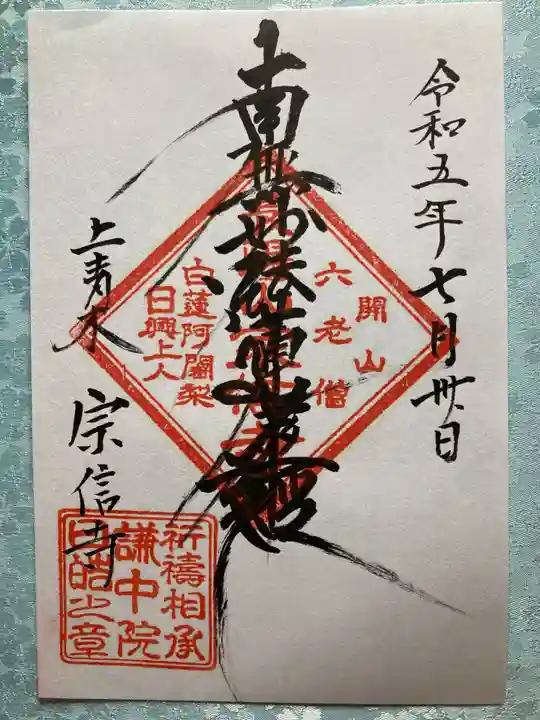 令和五年七月卅日
開山
六老僧
南無妙法蓮華経
白蓮阿闍梨
日興上人
上青木
宗信寺
祈禱相承
謙中院